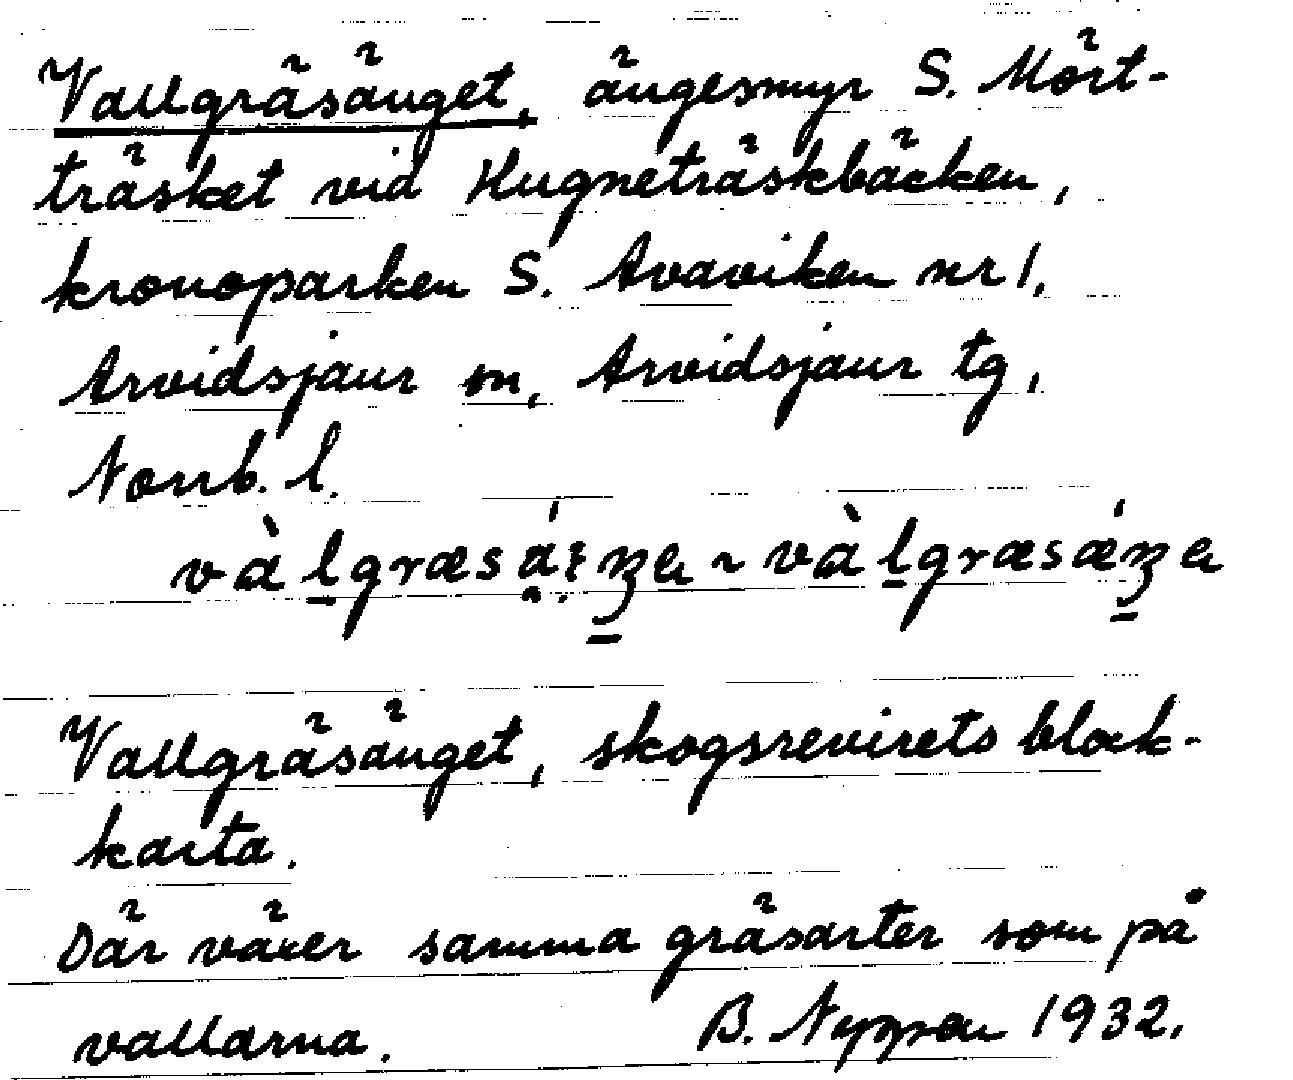 Vallgräsänget, ängesmyr S. Mört-
träsket vid Hugneträskbäcken,
kronoparken S. Avaviken nr 1,
Arvidsjaur sn, Arvidsjaur tg,
Norrb. l.
Vallgräsänget, skogsrevirets block-
karta.
Där växer samma gräsarter som på
vallarna. B. Nygren 1932.